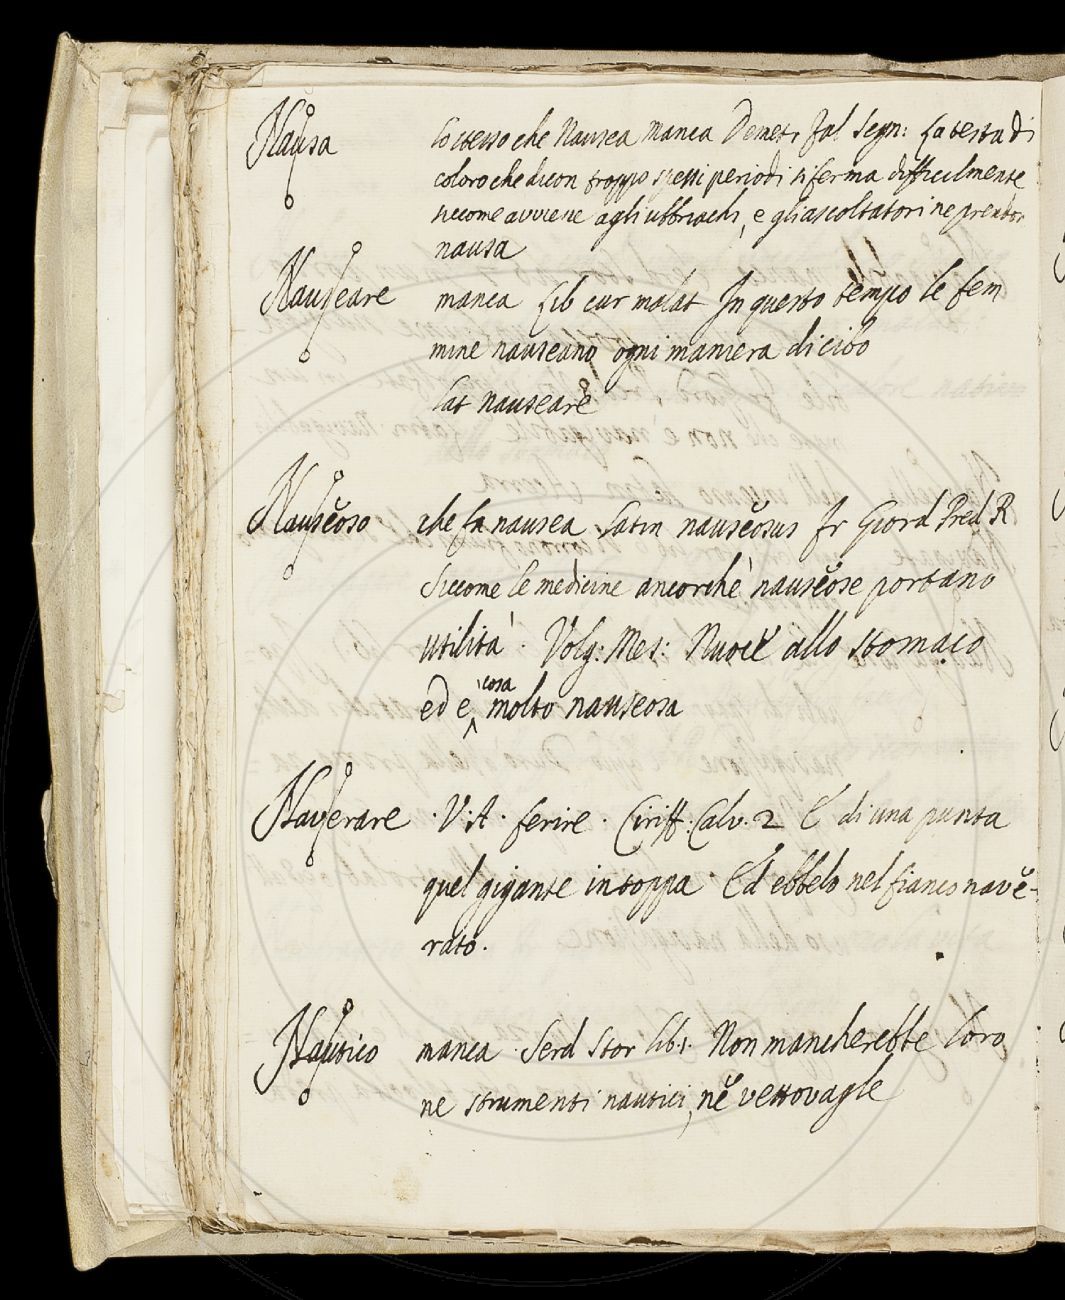 Nausa lo stesso che Nausea manca Demetr. Fal. Segn: La testa di
coloro che dicon troppo spessi periodi si ferma difficilmente
siccome avviene agli ubbriachi, e gli ascoltatori ne prendon
nausa
Nauseare manca Lib cur malat In questo tempo le fem
mine nauseano ogni maniera di cibo
Lat nauseare
Nauseoso che fa nausea Latin nauseosus Fr Giord Pred R
Siccome le medicine ancorchè nauseose portano
utilità. Volg: Mes: Nuoce allo stomaco
ed è cosa molto nauseosa
Naverare. V. A. ferire. Ciriff. Calv. 2 E di una punta
quel gigante intoppa. Ed ebbelo nel fianco nave-
rato.
Nautico manca Serd Stor lib. 1. Non mancherebbe loro
ne strumenti nautici, nè vettovagle